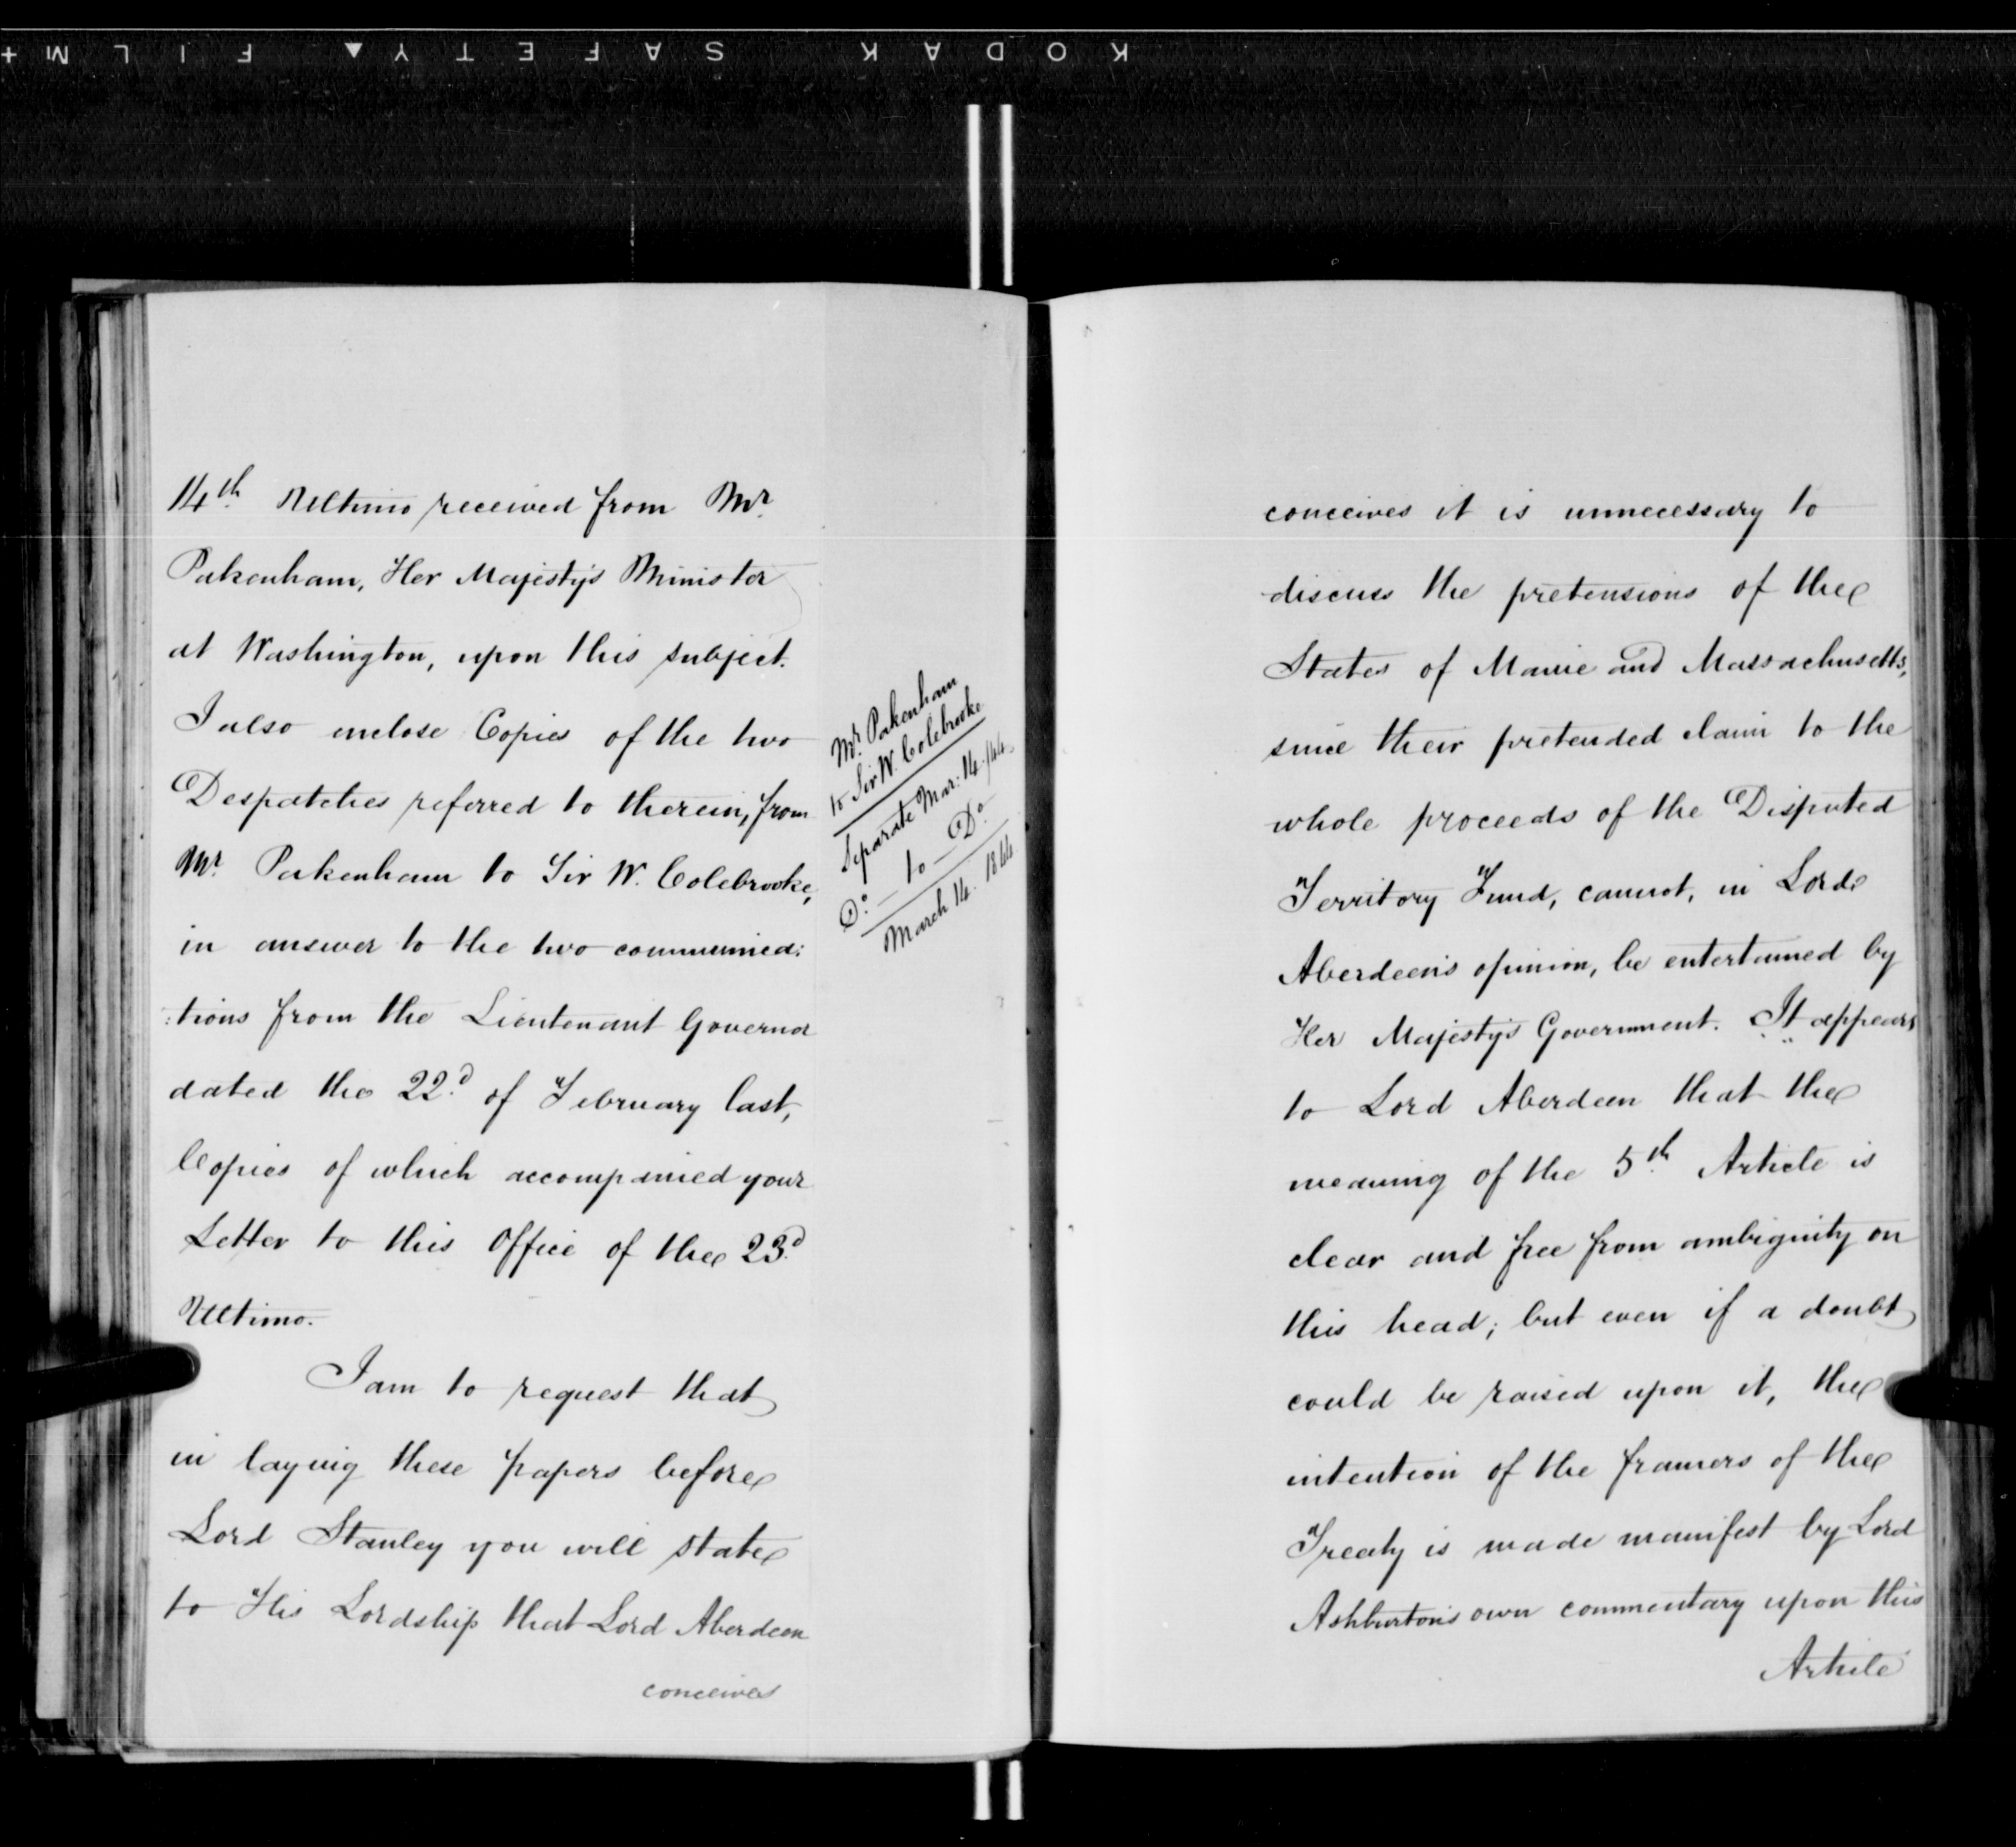 KODAK SAFETY ▲ FILM +
14th. Ultimo received from Mr.
Pakenham, Her Majesty's Minister
at Washington, upon this subject.
I also enclose Copies of the two
Despatches referred to therein, from
Mr. Pakenham to Sir W. Colebrooke,
in answer to the two communica:
:tions from the Lieutenant Governor
dated the 22d. of February last,
Copies of which accompanied your
Letter to this Office of the 23d.
Ultimo.
I am to request that
in laying these papers before
Lord Stanley you will state
to His Lordship that Lord Aberdeen
conceives
Mr. Pakenham
to Sir W. Colebrooke
Separate Mar: 14./44.
Do. — to — Do.
March 14. 1844.
conceives it is unnecessary to
discuss the pretensions of the
States of Maine and Massachusetts,
since their pretended claim to the
whole proceeds of the Disputed
Territory Fund, cannot, in Lord
Aberdeen's opinion, be entertained by
Her Majesty's Government. It appears
to Lord Aberdeen that the
meaning of the 5th. Article is
clear and free from ambiguity on
this head; but even if a doubt
could be raised upon it, the
intention of the framers of the
Treaty is made manifest by Lord
Ashburton's own commentary upon this
Article